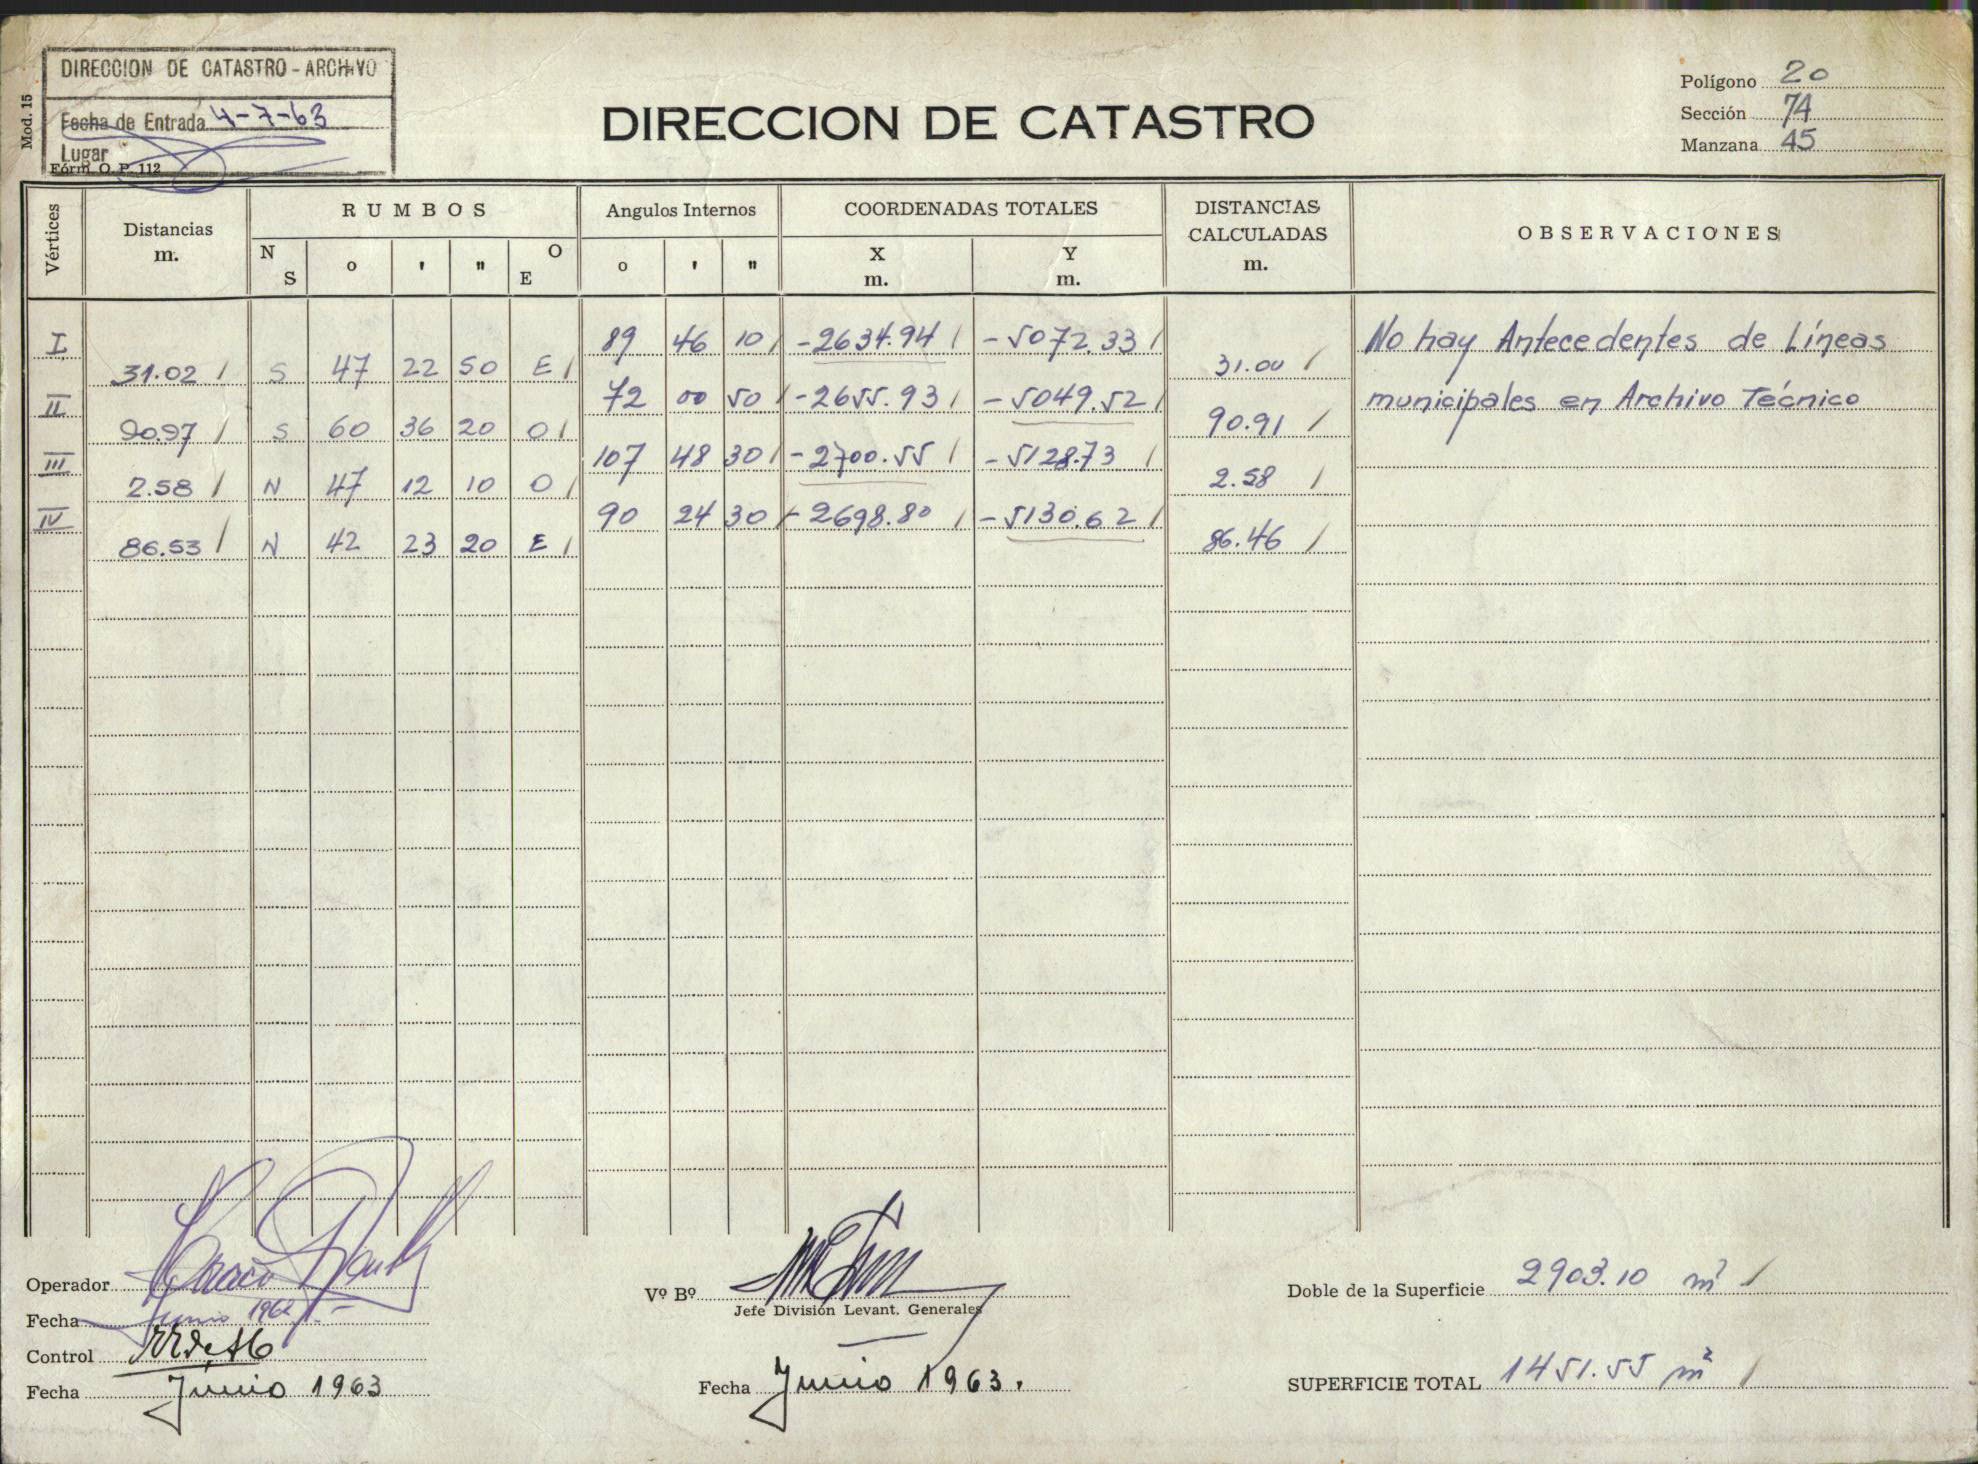 DIRECCION DE CATASTRO - ARCHIVO
Fecha de Entrada 4-7-63
Lugar
Fórm. O. P. 112
Mod. 15
DIRECCION DE CATASTRO
Polígono 20
Sección 74
Manzana 45
Vértices Distancias m. RUMBOS Angulos Internos COORDENADAS TOTALES DISTANCIAS CALCULADAS m. OBSERVACIONES
N S o ' " O E o ' " X m. Y m.
I 89 46 10 -2634.94 -5072.33 No hay Antecedentes de Líneas
31.02 S 47 22 50 E 31.00
II 72 00 50 -2655.93 -5049.52 municipales en Archivo Técnico
90.97 S 60 36 20 O 90.91
III 107 48 30 -2700.55 -5128.73
2.58 N 47 12 10 O 2.58
IV 90 24 30 -2698.80 -5130.62
86.53 N 42 23 20 E 86.46
Operador
Fecha Junio 1962
Control
Fecha Junio 1963
Vº Bº
Jefe División Levant. Generales
Fecha Junio 1963.
Doble de la Superficie 2903.10 m²
SUPERFICIE TOTAL 1451.55 m²